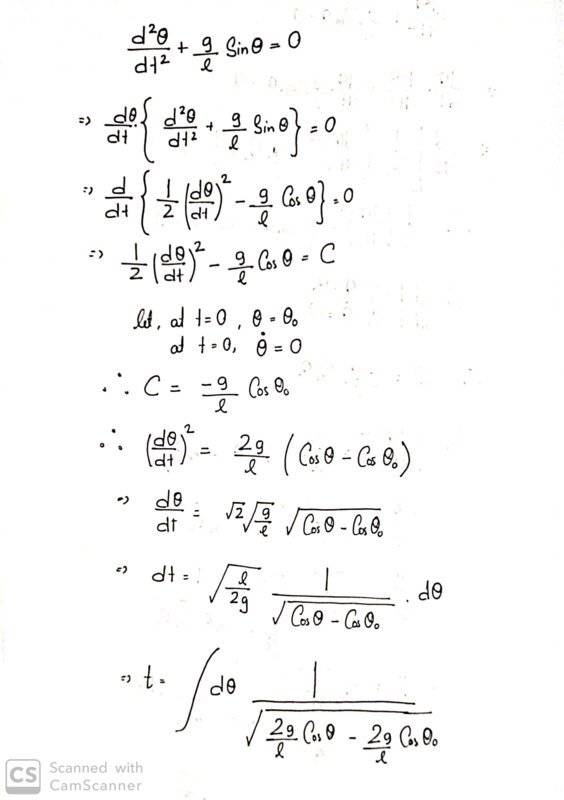 d²θ/dt² + g/l Sin θ = 0
⇒ dθ/dt { d²θ/dt² + g/l Sin θ } = 0
⇒ d/dt { 1/2 (dθ/dt)² - g/l Cos θ } = 0
⇒ 1/2 (dθ/dt)² - g/l Cos θ = C
let, at t=0, θ = θ₀
at t=0, θ̇ = 0
∴ C = -g/l Cos θ₀
∴ (dθ/dt)² = 2g/l (Cos θ - Cos θ₀)
⇒ dθ/dt = √2 √(g/l) √(Cos θ - Cos θ₀)
⇒ dt = √(l/2g) 1/√(Cos θ - Cos θ₀) . dθ
⇒ t = ∫ dθ 1/√(2g/l Cos θ - 2g/l Cos θ₀)
CS Scanned with
CamScanner